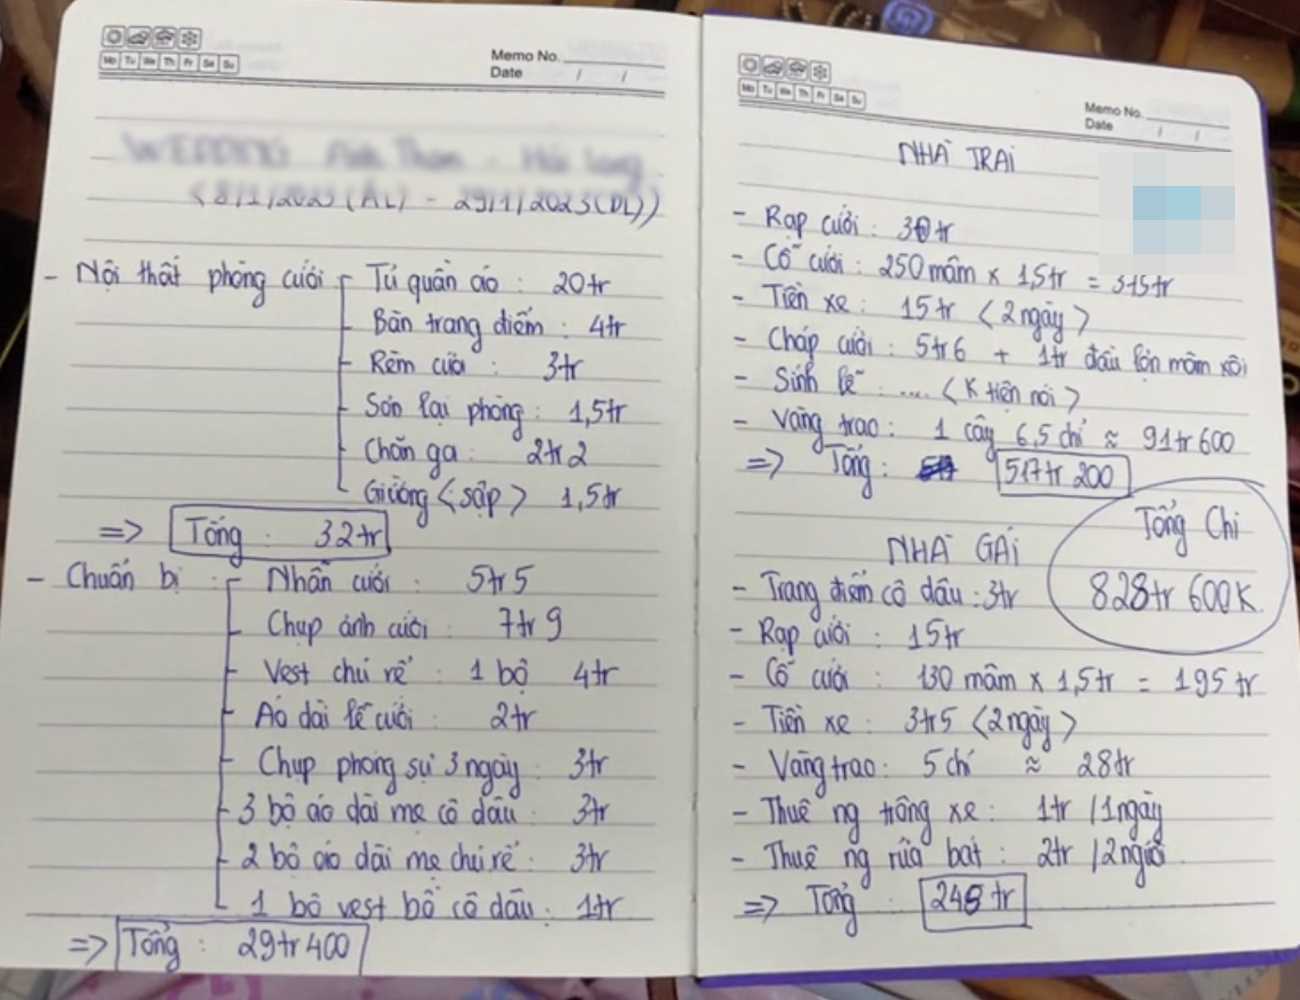 Mo Tu We Th Fr Sa Su
Memo No.
Date / /
WEDDING
(8/1/2023 (ÂL) - 29/1/2023 (DL))
- Nội thất phòng cưới - Tủ quần áo : 20tr
- Bàn trang điểm : 4tr
- Rèm cửa : 3tr
- Sơn lại phòng : 1,5tr
- Chăn ga : 2tr2
- Giường <sập> 1,5tr
=> Tổng : 32tr
- Chuẩn bị : - Nhẫn cưới : 5tr5
- Chụp ảnh cưới : 7tr9
- Vest chú rể : 1 bộ 4tr
- Áo dài lễ cưới : 2tr
- Chụp phóng sự 3 ngày : 3tr
- 3 bộ áo dài mẹ cô dâu : 3tr
- 2 bộ áo dài mẹ chú rể : 3tr
- 1 bộ vest bố cô dâu : 1tr
=> Tổng : 29tr400
Mo Tu We Th Fr Sa Su
Memo No.
Date / /
NHÀ TRAI
- Rạp cưới : 30tr
- Cỗ cưới : 250 mâm x 1,5tr = 375tr
- Tiền xe : 15tr <2 ngày>
- Cháp cưới : 5tr6 + 1tr đầu lợn mâm xôi
- Sính lễ : .... <K tiện nói>
- Vàng trao : 1 cây 6,5 chỉ ≈ 91tr600
=> Tổng : 517tr 200
Tổng Chi
828tr 600K
NHÀ GÁI
- Trang điểm cô dâu : 3tr
- Rạp cưới : 15tr
- Cỗ cưới : 130 mâm x 1,5tr = 195tr
- Tiền xe : 3tr5 <2 ngày>
- Vàng trao : 5 chỉ ≈ 28tr
- Thuê ng trông xe : 1tr /1ngày
- Thuê ng rửa bát : 2tr /2người
=> Tổng : 248 tr